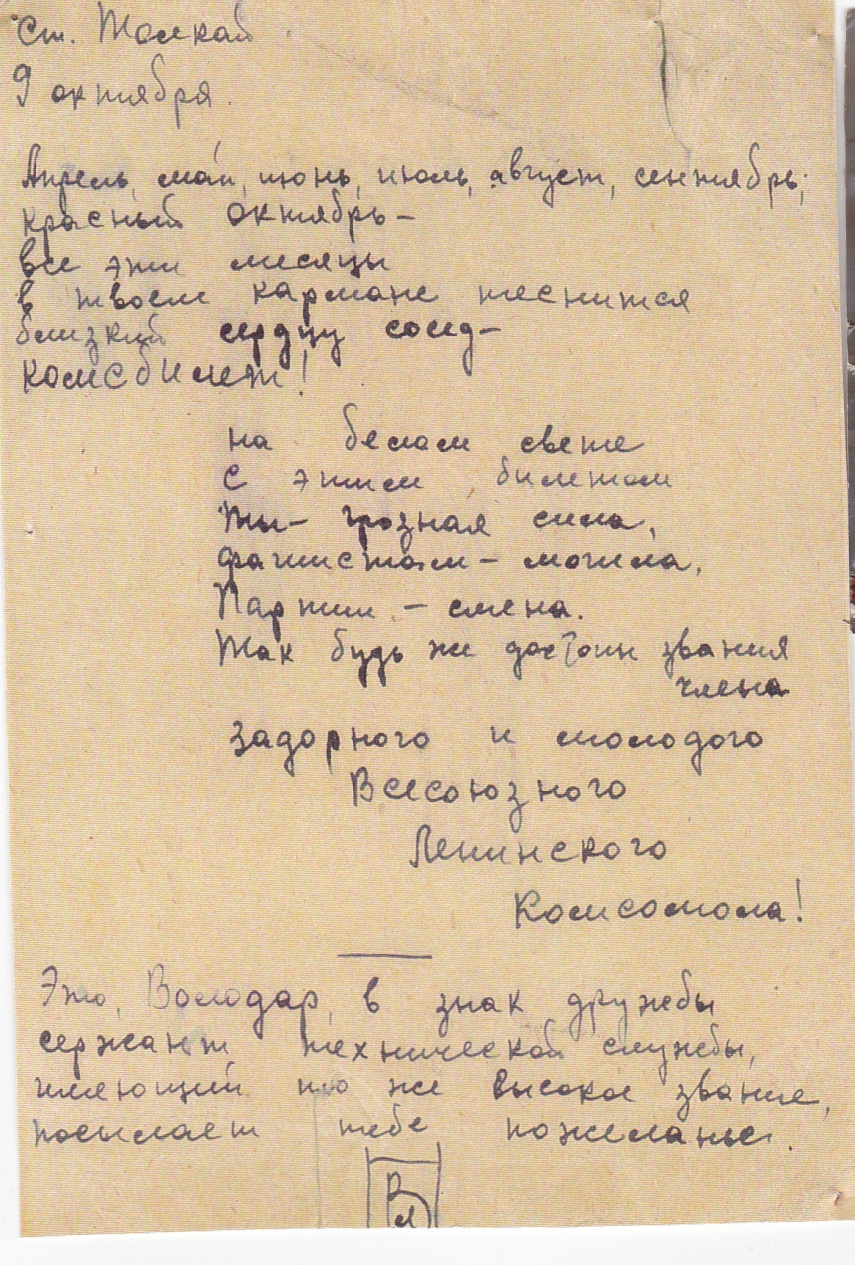 Ст. Толкай
9 октября.
Апрель, май, июнь, июль, август, сентябрь,
красный октябрь –
все эти месяцы
в твоем кармане теснится
близкий сердцу сосед –
комсбилет!
на белом свете
с этим билетом
Ты – грозная сила,
фашистам – могила,
Партии – смена.
Так будь же достоин звания
члена
задорного и молодого
Всесоюзного
Ленинского
Комсомола!
Это, Володар, в знак дружбы
сержант технической службы,
имеющий то же высокое звание,
посылает тебе пожеланье.